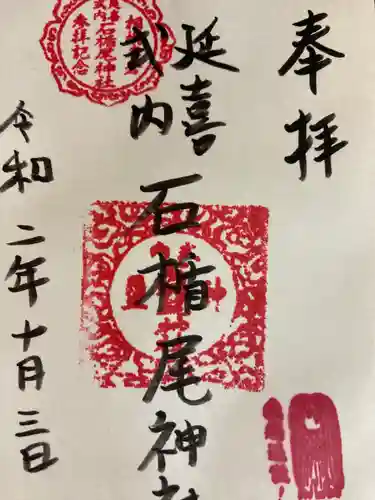 奉拝
延喜
式内
石楯尾神社
令和二年十月三日
石楯尾神社
参拝記念